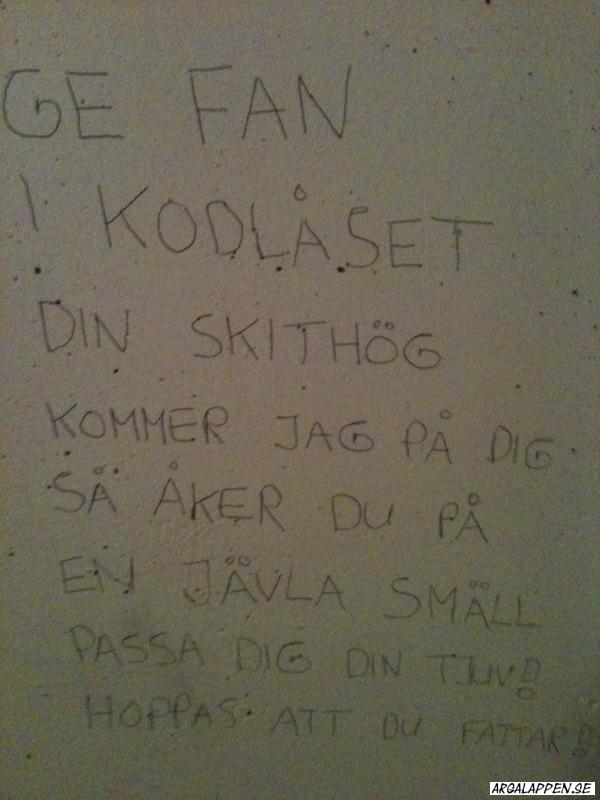 GE FAN
I KODLÅSET
DIN SKITHÖG
KOMMER JAG PÅ DIG
SÅ ÅKER DU PÅ
EN JÄVLA SMÄLL
PASSA DIG DIN TJUV!
HOPPAS ATT DU FATTAR!
ARGALAPPEN.SE